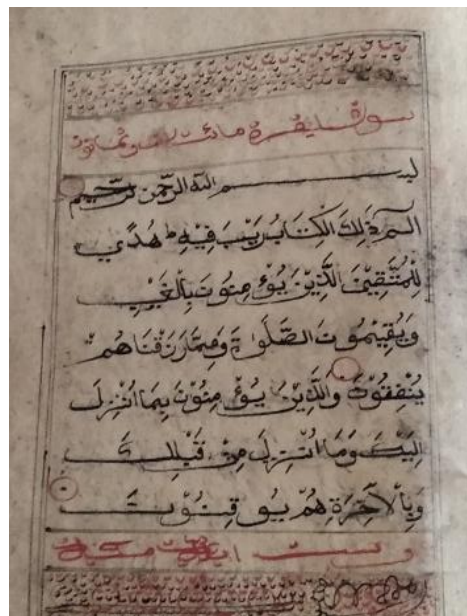 سورة لبقرة
بسم الله الرحمن الرحيم
الم ذَلِكَ الْكِتَابُ رَيْبَ فِيْهِ ط هُدًي
لِلْمُتَّقِيْنَ الَّذِيْنَ يُؤْمِنُوْنَ بِالْغَيْبِ
وَيُقِيْمُوْنَ الصَّلَوٰةَ وَمِمَّا رَزَقْنَاهُمْ
يُنْفِقُوْنَ وَالَّذِيْنَ يُؤْمِنُوْنَ بِمَا اُنْزِلَ
اِلَيْكَ وَمَا اُنْزِلَ مِنْ قَبْلِكَ
وَبِالْاَخِرَةِ هُمْ يُوْقِنُوْنَ
وست